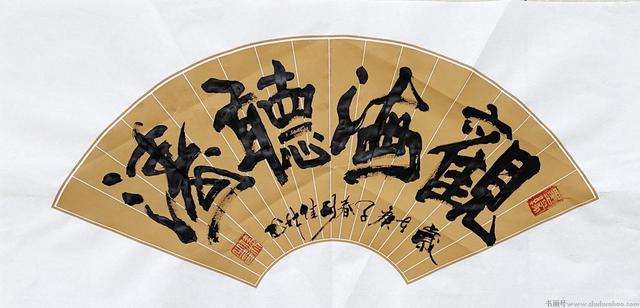 觀海聽濤
歲在庚子春月
书画号www.shuhuahao.com